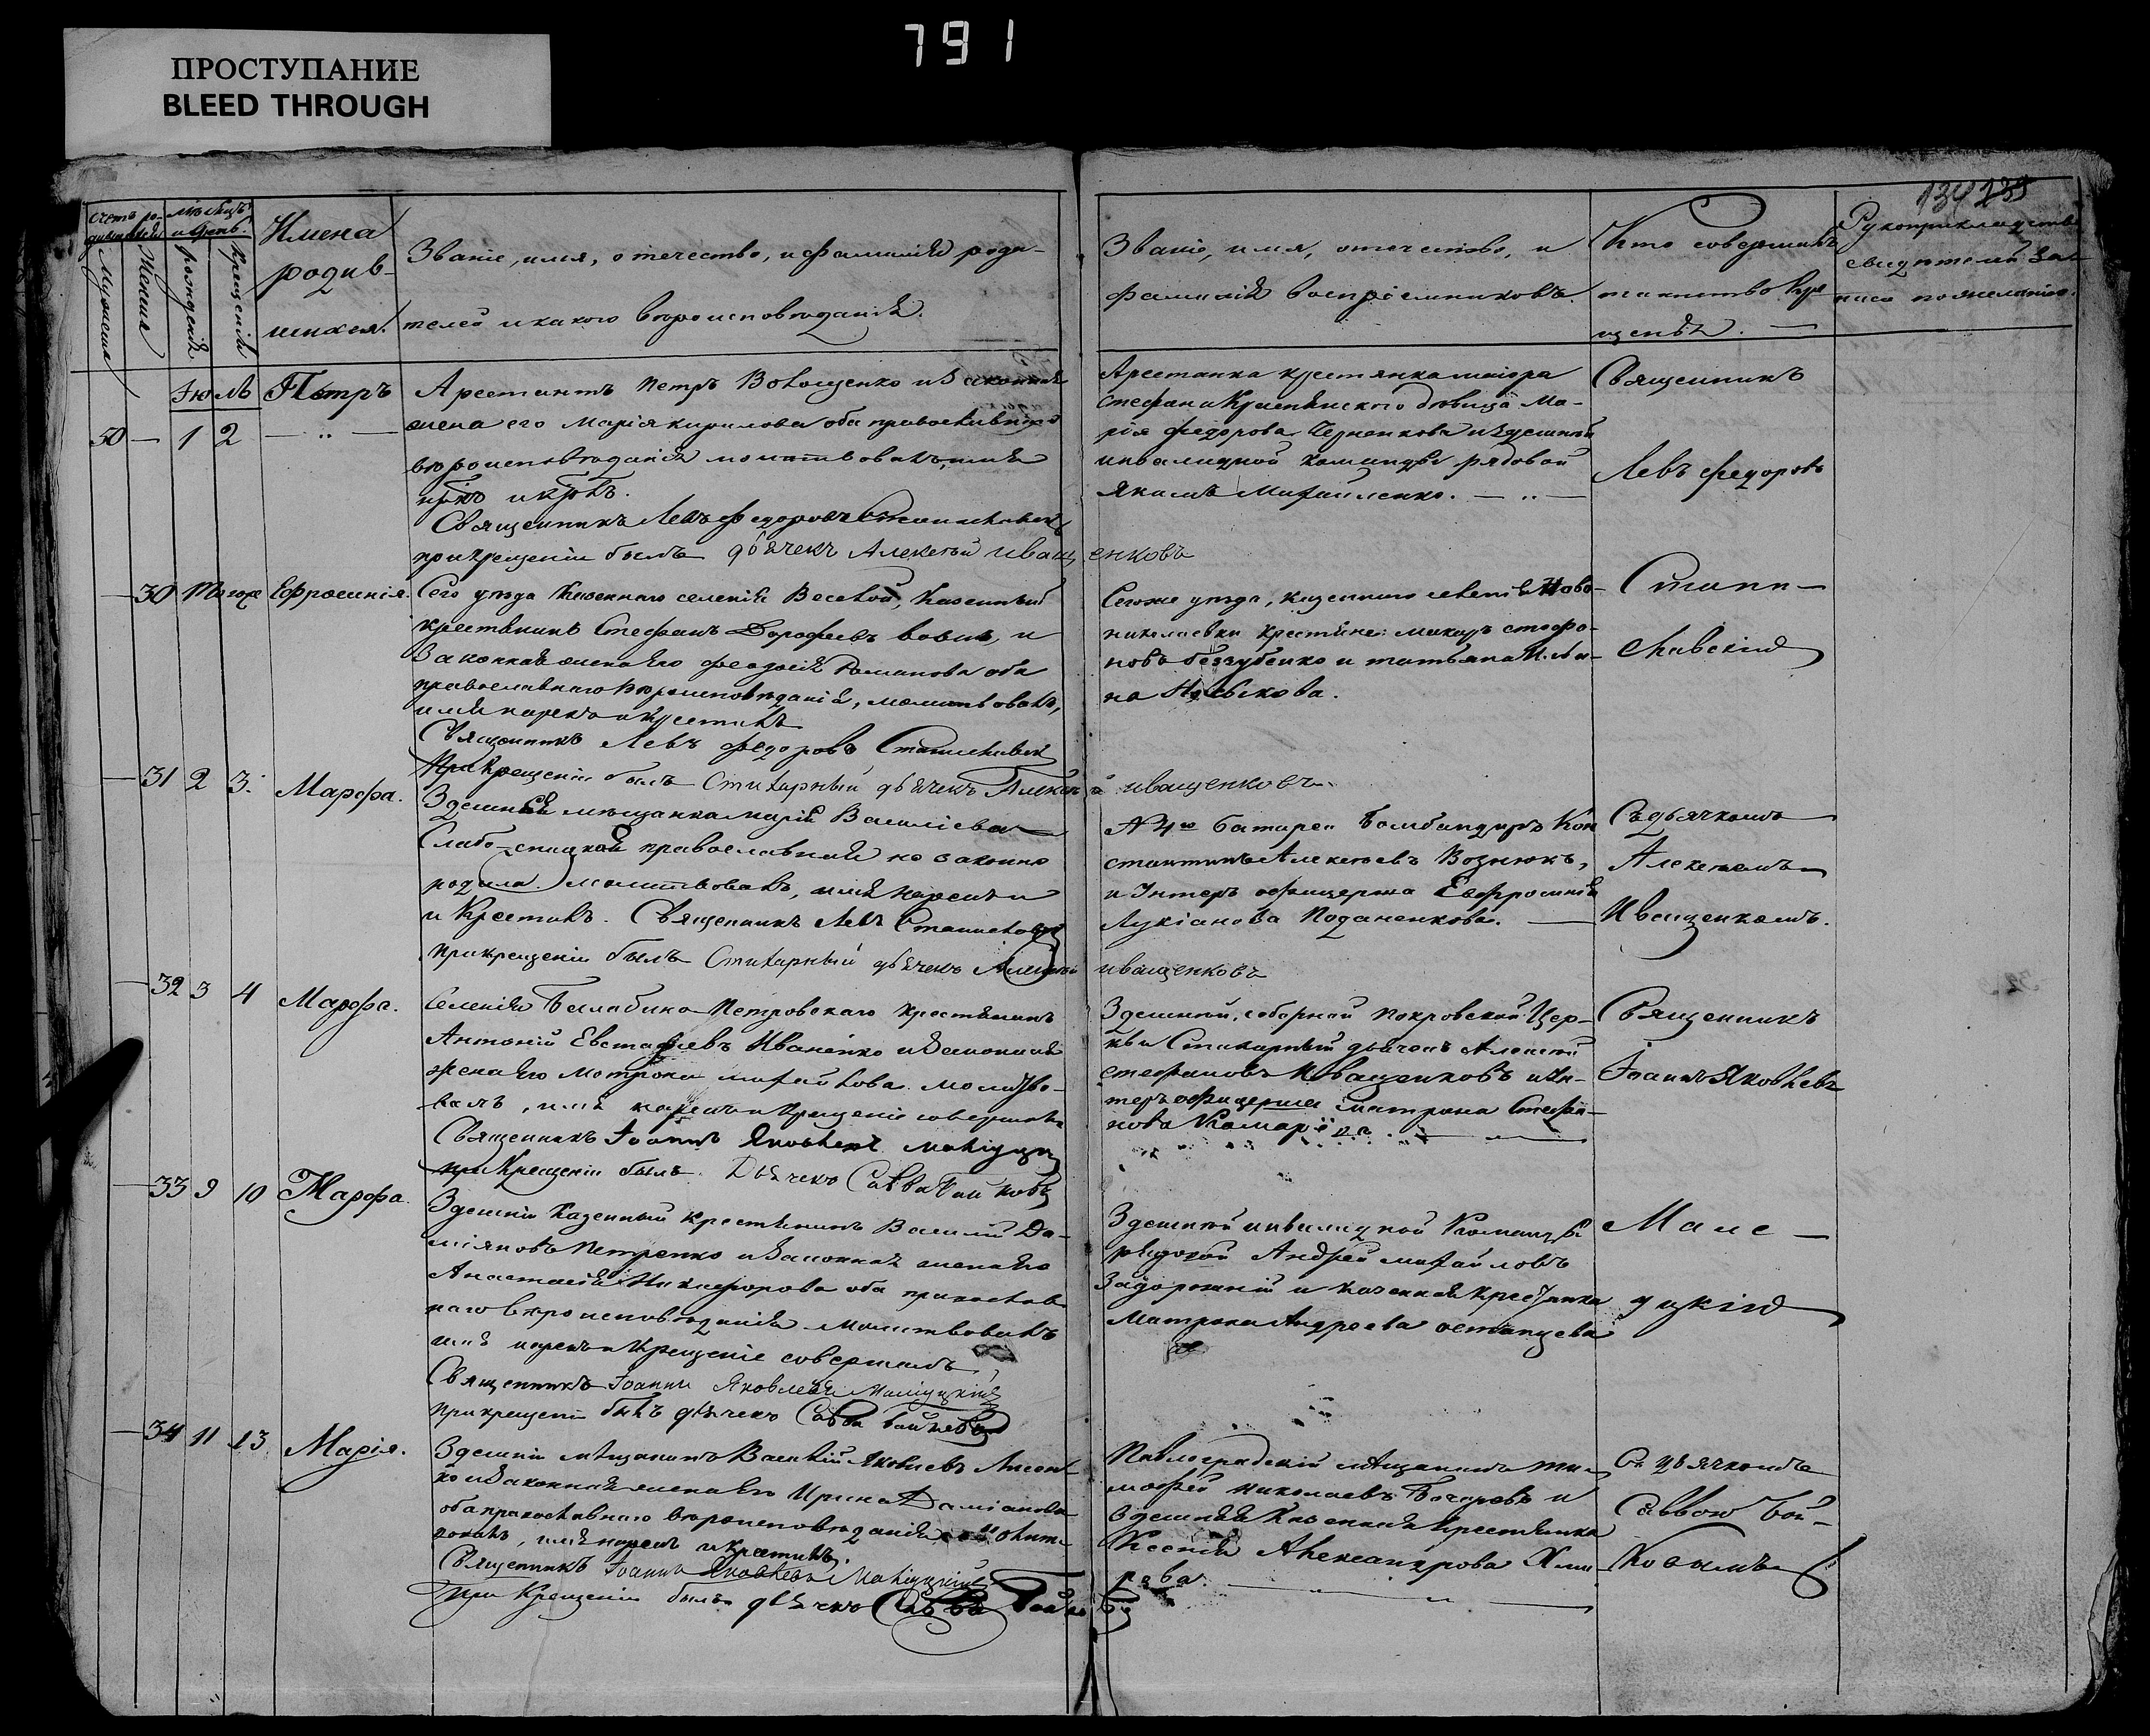 791
ПРОСТУПАНИЕ
BLEED THROUGH
134 135
Счетъ родившихся
Мужеска
Женска
Мѣсяцъ и день.
рожденія
крещенія
Имена родив-
шихся.
Званіе, имя, отечество, и фамилія роди-
телей и какого вѣроисповѣданія.
Званіе, имя, отечество, и
фамилія воспріемниковъ.
Кто совершилъ
таинство кре
щенія.
Рукоприкладство
свидѣтелей за-
писи по желанію.
Іюль
50 1 2
Петръ
Арестантъ Петръ Волощенко и законная
жена его Марія Кирилова оба православнаго
вѣроисповѣданія молитвовалъ, имя
Священникъ Левъ Федоровъ Станиславскій
при крещеніи былъ дьячекъ Алексѣй Иващенковъ
Арестанка крестянка маіора
Стефана дѣвица Ма-
рія Федорова Черненкова и здешней
инвалидной команды рядовой
Якимъ Михайленко.
Священникъ
Левъ Федоровъ
Стани-
славскій
30 тогоже Ефросинія.
Сего уѣзда казеннаго селенія Веселой, казенный
крестянинъ Стефанъ Дорофеевъ Вовкъ, и
законная жена его Феодосія Романова оба
православнаго вѣроисповѣданія, молитвовалъ,
имя нарекъ и крестилъ
Священникъ Левъ Федоровъ Станиславскій
При крещеніи былъ Стихарный дьячекъ Алексѣй Иващенковъ
Сегоже уѣзда, казеннаго селенія Ново-
николаевки крестяне: Макаръ Стефа-
новъ Беззубенко и Татьяна Ильи-
на
31 2 3. Марфа.
Здешняя мѣщанка Марія Василіева
Слабо православная незаконно
родила. Молитвовалъ, имя нарекъ и
и Крестилъ. Священникъ Левъ Станиславскій
при крещеніи былъ Стихарный дьячекъ Алексѣй Иващенковъ
№ 4й батареи Бомбандиръ Кон
стантинъ Алексѣевъ Вознюкъ,
и Унтеръ офицерша Евфросинія
Лукіанова Поданенкова.
Съ дьячкомъ
Алексѣемъ
Иващенкомъ.
32 3 4 Марфа.
Селенія Петровскаго крестянинъ
Антоній Евстафіевъ Иваненко и законная
жена его Матрона Михайлова. молитво-
валъ, имя нарекъ и крещеніе совершилъ
Священникъ Іоаннъ Яковлевъ Малсуцкій
при Крещеніи былъ. Дьячекъ Савва Байковъ
Здешней, соборной Покровской Цер-
кви Стихарный дьячекъ Алексѣй
Стефановъ Иващенковъ и Ун-
теръ офицерша Матрона Стефа-
нова
Священникъ
Іоаннъ Яковлевъ
Малс
уцкій
33 9 10 Марфа.
Здешній Казенный крестянинъ Василій Да-
міановъ Петренко и законная жена его
Анастасія Никифорова оба православ
наго вѣроисповѣданія молитвовалъ
имя нарекъ и крещеніе совершилъ
Священникъ Іоаннъ Яковлевъ Малсуцкій
При крещеніи былъ дьячекъ Савва Байковъ
Здешней инвалидной Команды
рядовой Андрей Михайловъ
Задорожній и казенная крестянка
Матрона Андреева Остапцева
34 11 13 Марія.
Здешній мѣщанинъ Василій Яковлевъ Лисен-
ко и законная жена его Ирина Даміанова
оба православнаго вѣроисповѣданія молит
вовалъ, имя нарекъ и крестилъ.
Священникъ Іоаннъ Яковлевъ Малсуцкій
при Крещеніи былъ дьячекъ Савва Байковъ
Павлоградскій мѣщанинъ Ти-
мофей Николаевъ Бочаровъ и
здешняя казенная крестянка
Ксенія Александрова
Съ дьячкомъ
Саввою Бай-
ковымъ